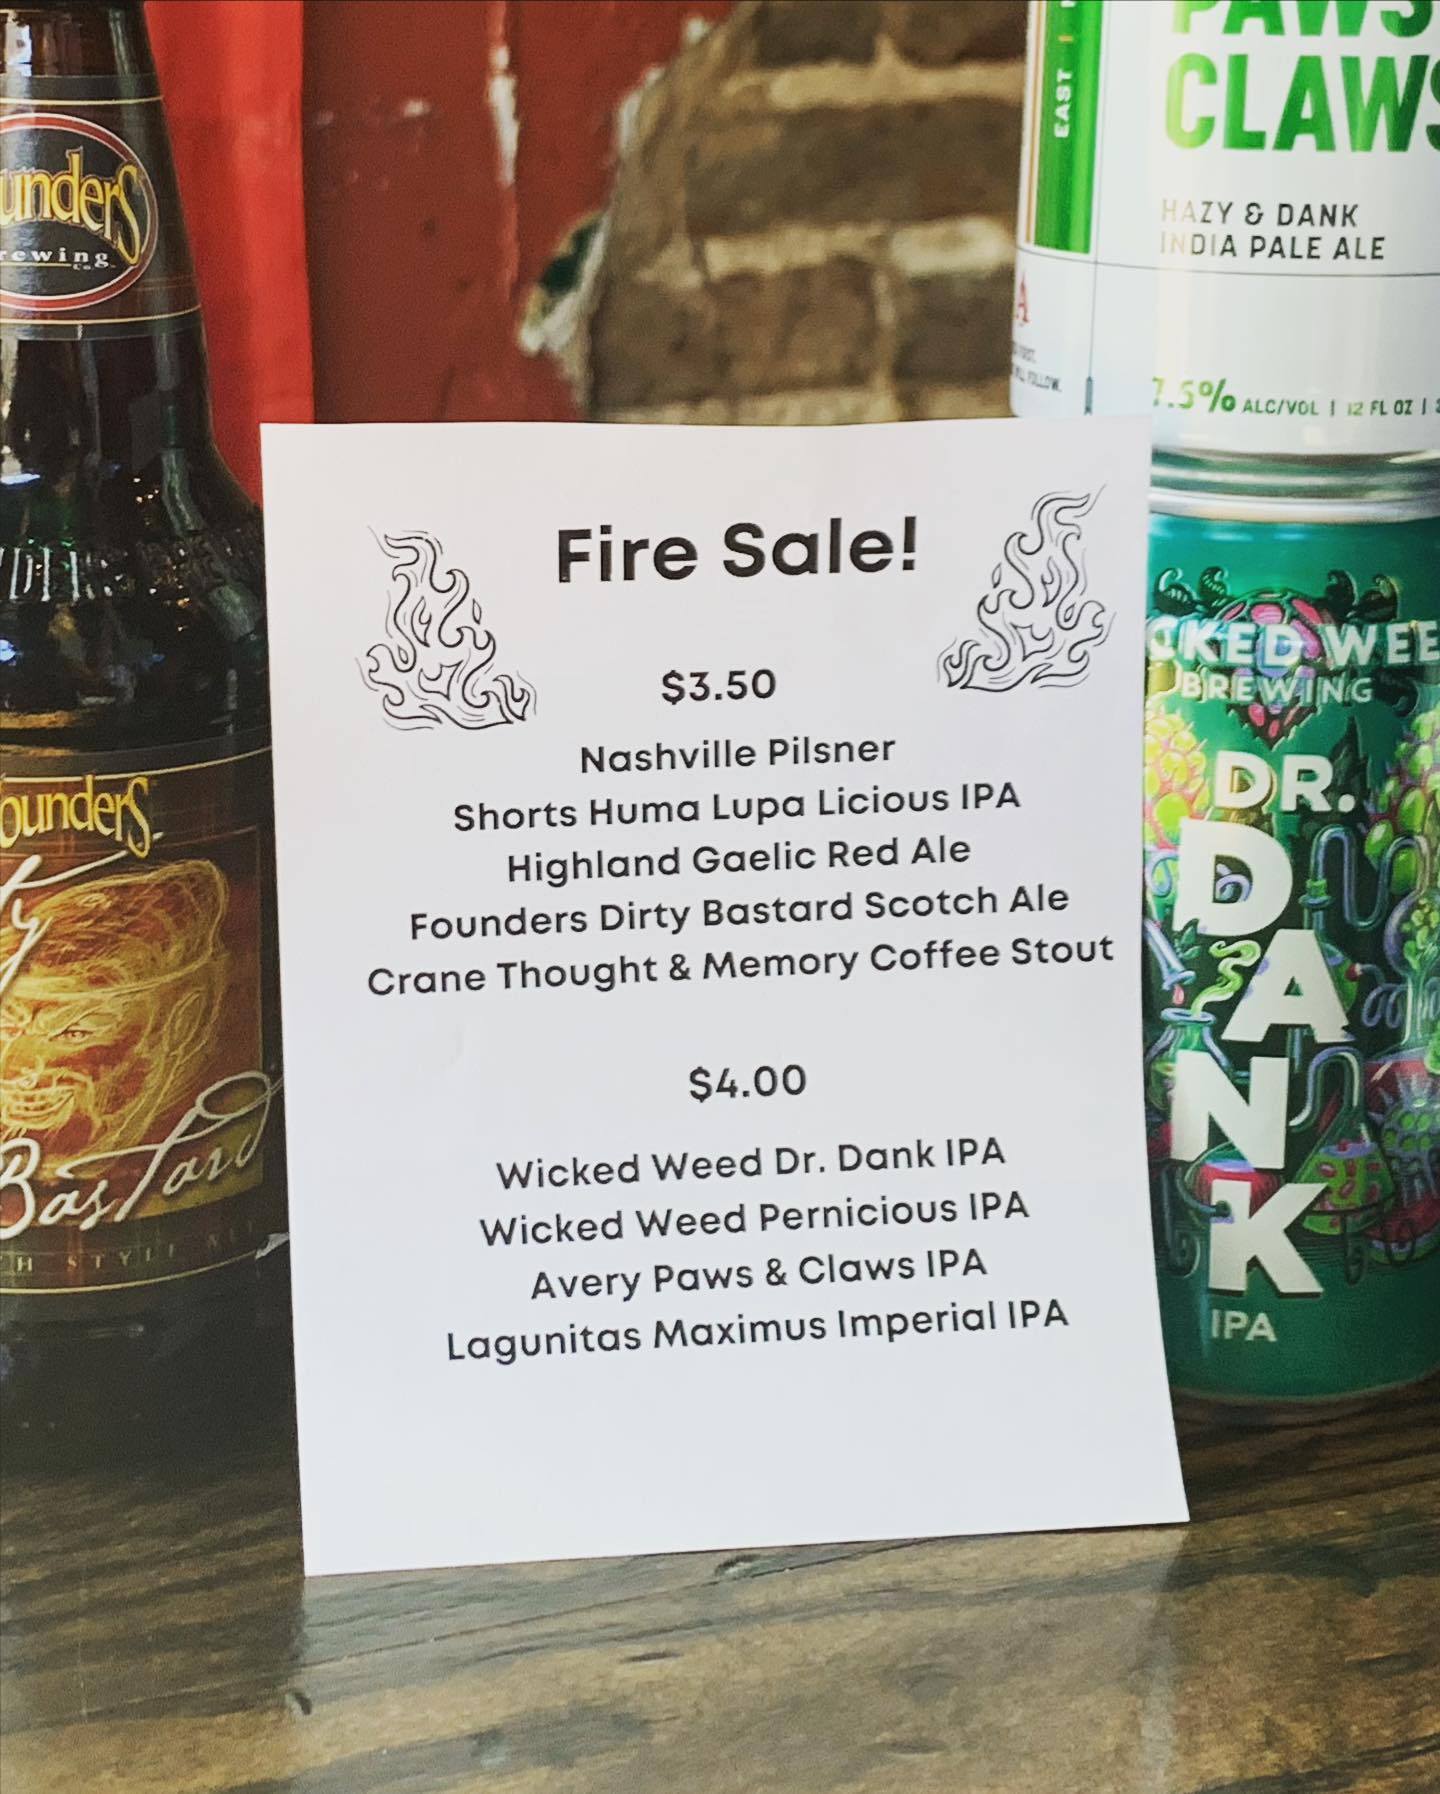 ounders
rewing
Co.
PAWS
CLAWS
EAST
HAZY & DANK
INDIA PALE ALE
7.5% ALC/VOL | 12 FL OZ |
Fire Sale!
$3.50
Nashville Pilsner
Shorts Huma Lupa Licious IPA
Highland Gaelic Red Ale
Founders Dirty Bastard Scotch Ale
Crane Thought & Memory Coffee Stout
$4.00
Wicked Weed Dr. Dank IPA
Wicked Weed Pernicious IPA
Avery Paws & Claws IPA
Lagunitas Maximus Imperial IPA
ounders
ty
Bastard
H STYLE
CKED WEE
BREWING
DR.
DANK
IPA